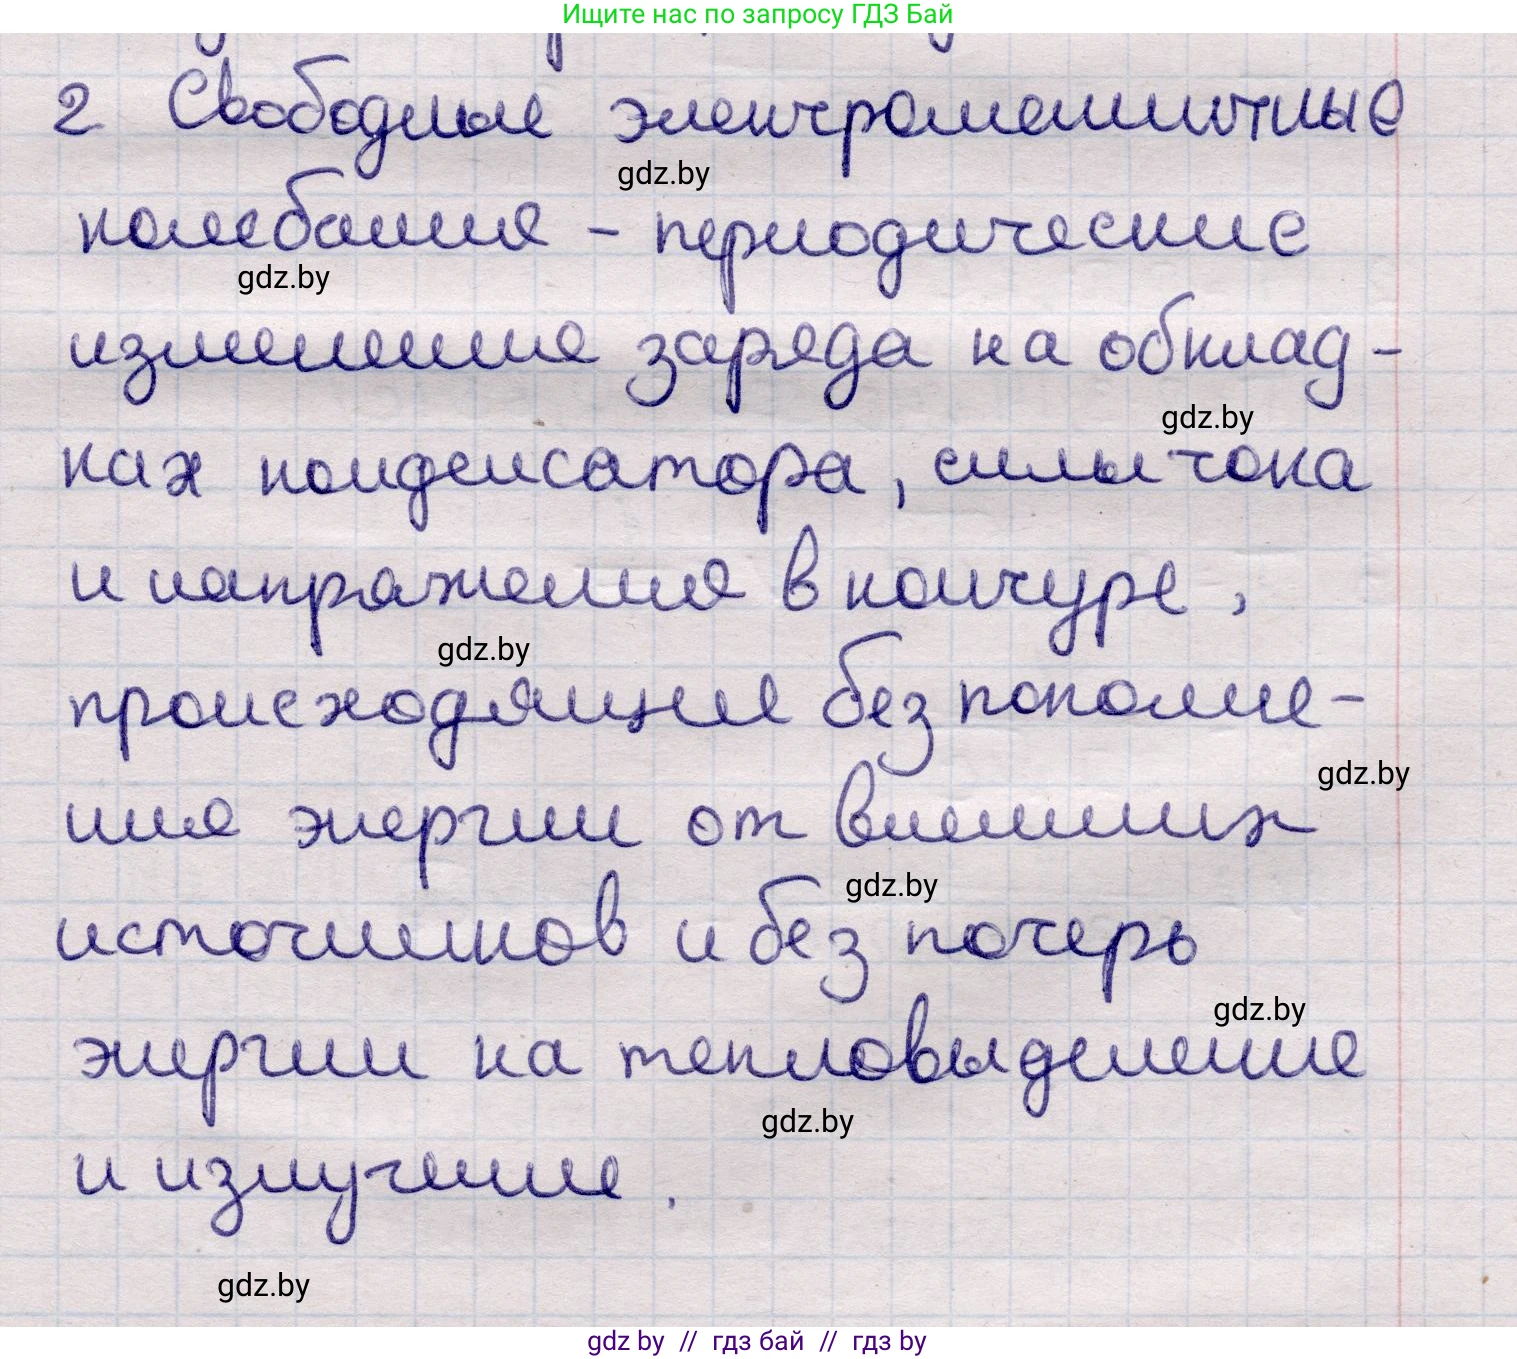 Ищите нас по запросу ГДЗ Бай
2 Свободные электромагнитные
gdz.by
колебания - периодические
gdz.by
изменения заряда на обклад-
gdz.by
ках конденсатора, силы тока
и напряжения в контуре,
gdz.by
происходящие без пополне-
gdz.by
ния энергии от внешних
gdz.by
источников и без потерь
gdz.by
энергии на тепловыделение
gdz.by
и излучение.
gdz.by
gdz by // гдз бай // гдз by